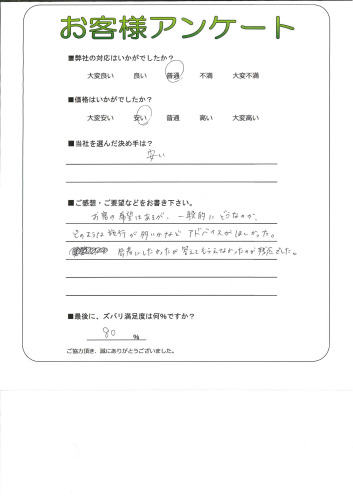 お客様アンケート
■弊社の対応はいかがでしたか？
大変良い 良い 普通 不満 大変不満
■価格はいかがでしたか？
大変安い 安い 普通 高い 大変高い
■当社を選んだ決め手は？
安い
■ご感想・ご要望などをお書き下さい。
お客の希望はあるが、一般的にどうなのか、
どのような施行が多いかなどアドバイスがほしかった。
参考にしたかったが答えてもらえなかったのが残念でした。
■最後に、ズバリ満足度は何％ですか？
80 %
ご協力頂き、誠にありがとうございました。